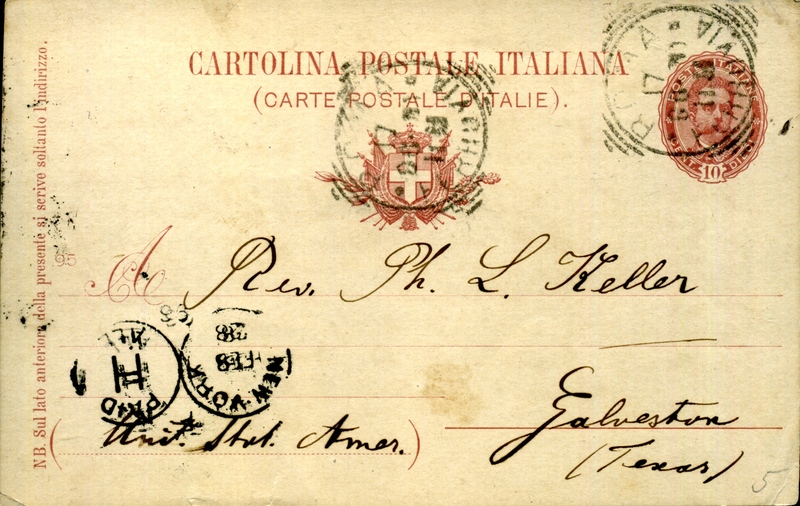 CARTOLINA POSTALE ITALIANA
(CARTE POSTALE D'ITALIE).
NB. Sul lato anteriore della presente si scrive soltanto l'indirizzo.
ROMA
17
ROMA
17
10
95
A Rev. Ph. L. Keller
98
PAID
ALL
NEW YORK
FEB
28
Galveston
(Texas)
(Unit. Stat. Amer.)
5